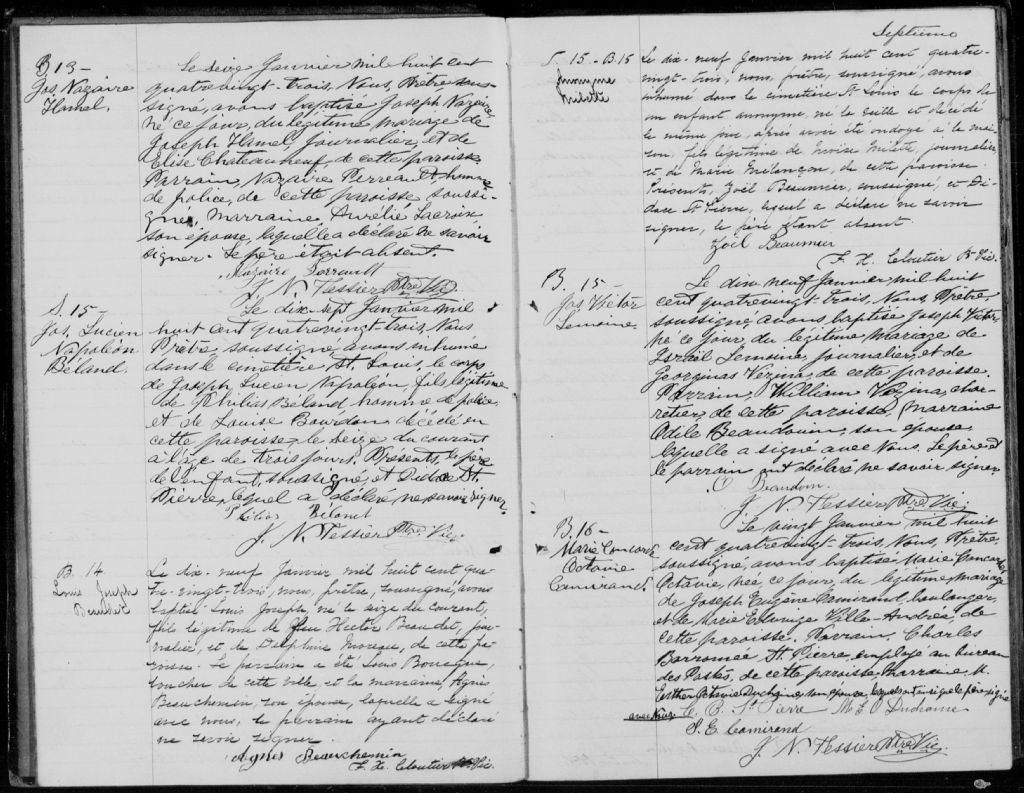 B 13 -
Jos. Nazaire
Hamel.
Le seize Janvier mil huit cent
quatrevingt-trois, Nous, Prêtre sous-
signé, avons baptisé Joseph Nazaire,
né ce jour, du légitime mariage de
Joseph Hamel, journalier, et de
Elise Chateauneuf, de cette paroisse.
Parrain, Nazaire Perreault, homme
de police, de cette paroisse, soussi-
gné, Marraine, Aurélie Lacroix
son épouse, laquelle a déclaré ne savoir
signer. Le père était absent.
Nazaire Perrault
J. N. Tessier Ptre Vic.
S. 15 -
Jos. Lucien
Napoléon
Béland.
Le dix-sept Janvier mil
huit cent quatrevingt-trois, Nous
Prêtre soussigné, avons inhumé
dans le cimetière St. Louis, le corps
de Joseph Lucien Napoléon, fils légitime
de Philias Béland, homme de police,
et de Louise Bourdon, décédé en
cette paroisse, le seize du courant
à l'âge de trois jours. Présents, le père
de l'enfant, soussigné, et Didace St.
Pierre, lequel a déclaré ne savoir signer.
Philias Béland
J. N. Tessier Ptre Vic.
B. 14
Louis Joseph
Beaudet
Le dix-neuf Janvier mil huit cent qua-
tre-vingt-trois, nous, prêtre, soussigné, avons
baptisé Louis Joseph, né le seize du courant,
fils légitime de feu Hector Beaudet, jour-
nalier, et de Delphine Moreau, de cette pa-
roisse. Le parrain a été Louis Bourque,
boucher de cette ville, et la marraine, Agnès
Beauchemin, son épouse, laquelle a signé
avec nous, le parrain ayant déclaré
ne savoir signer.
Agnes Beauchemin
F. X. Cloutier Ptre Vic.
Septimo
S. 15 - B 15
Anonyme
Milette
Le dix-neuf Janvier mil huit cent quatre-
vingt-trois, nous, prêtre, soussigné, avons
inhumé dans le cimetière St Louis le corps de
un enfant anonyme, né la veille et décédé
le même jour, après avoir été ondoyé à la mai-
son, fils légitime de Moïse Milette, journalier,
et de Marie Melançon, de cette paroisse.
Présents, Joël Beaumier, soussigné, et Di-
dace St Pierre, lequel a déclaré ne savoir
signer, le père étant absent
Joël Beaumier
F. X. Cloutier Ptre Vic.
B. 15 -
Jos Victor
Lemoine.
Le dix neuf Janvier mil huit
cent quatrevingt-trois, Nous Prêtre
soussigné, avons baptisé Joseph Victor,
né ce jour, du légitime mariage de
Lemoine, journalier, et de
Georginas Vézina, de cette paroisse.
Parrain, William Vézina, char-
retier, de cette paroisse, Marraine
Odile Beaudouin, son épouse,
laquelle a signé avec Nous. Le père et
le parrain ont déclaré ne savoir signer.
O Beaudoin.
J. N. Tessier Ptre Vic.
B. 16 -
Marie Concorde
Octavie
Camirand.
Le vingt Janvier mil huit
cent quatrevingt-trois, Nous, Prêtre
soussigné, avons baptisé Marie Concorde
Octavie, née ce jour, du légitime mariage
de Joseph Eugène Camirand, boulanger,
et de Marie Edwige Ville-Andrée, de
cette paroisse. Parrain, Charles
Borromée St. Pierre, employé au bureau
des Postes, de cette paroisse, Marraine, M.
Esther Octavie Duchaine, son épouse, lesquels ont ainsi que le père signé
avec Nous. C. B. St Pierre M E O Duchaine
J. E. Camirand
J. N. Tessier Ptre Vic.